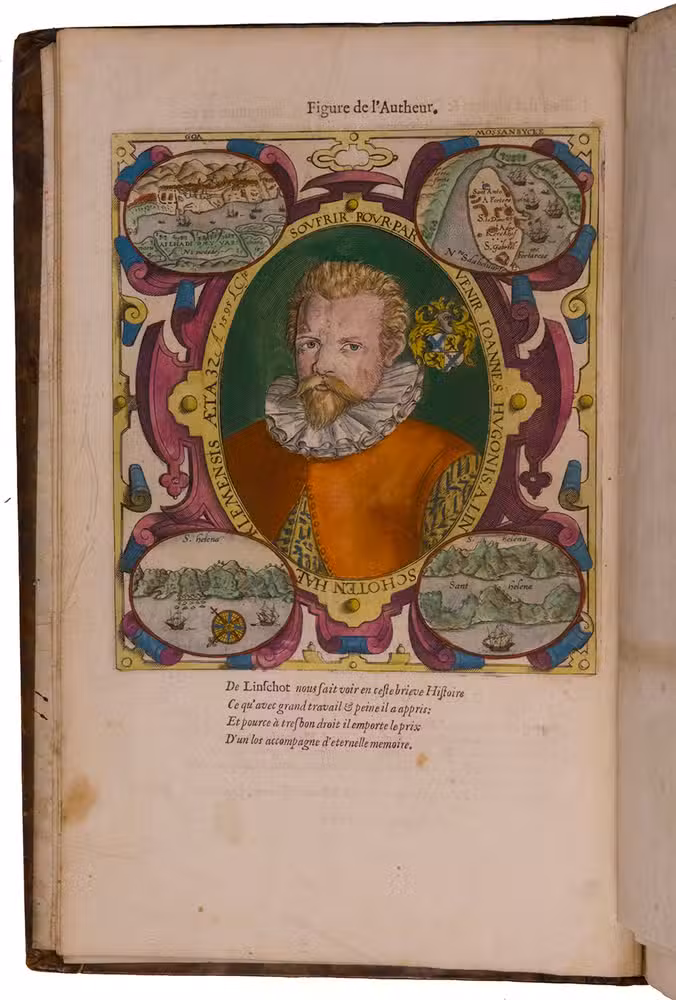 Figure de l'Autheur.
GOA
MOSSANBYCKE
SOVFRIR POVR PARVENIR IOANNES HVGONIS A LINSCHOTEN HARLEMENSIS ÆTA 32 Aº 1595
S. Gabriel
S. helena
S. helena
Sant helena
De Linſchot nous fait voir en ceſte brieve Hiſtoire
Ce qu'avec grand travail & peine il a appris:
Et pource à treſbon droit il emporte le prix
D'un los accompagne d'eternelle memoire.